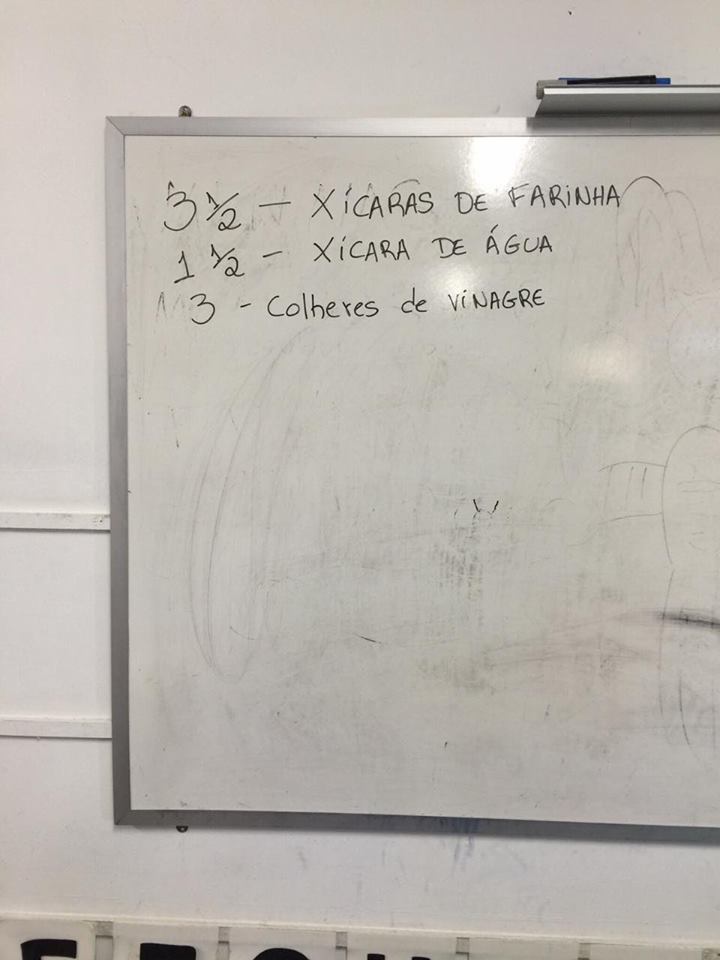 3 1/2 - XÍCARAS DE FARINHA
1 1/2 - XÍCARA DE ÁGUA
3 - Colheres de VINAGRE